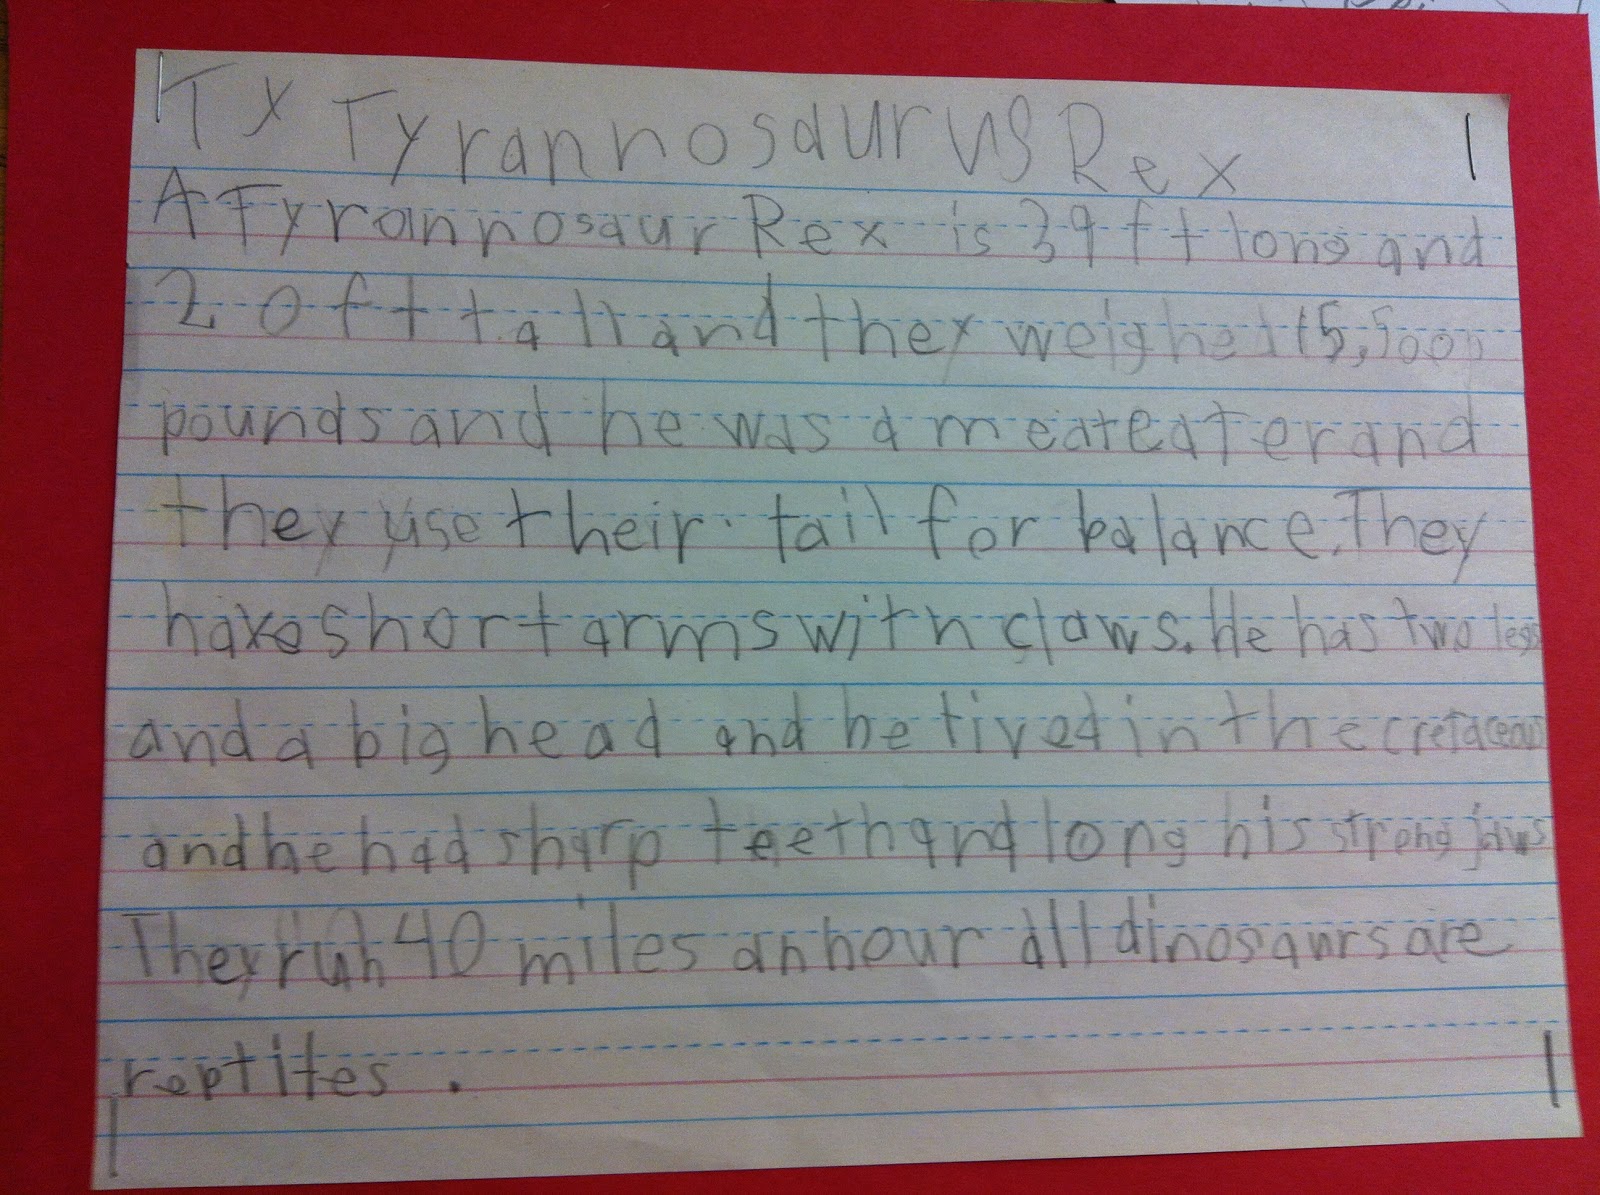 Tx Tyrannosaurus Rex
A Tyrannosaur Rex is 39 ft long and
20 ft tall and they weighed 15,500
pounds and he was a meateater and
they use their. tail for balance. They
have short arms with claws. He has two legs
and a big head and he lived in the cretaceous
and he had sharp teeth and long his strong jaws
They run 40 miles an hour all dinosaurs are
reptiles.